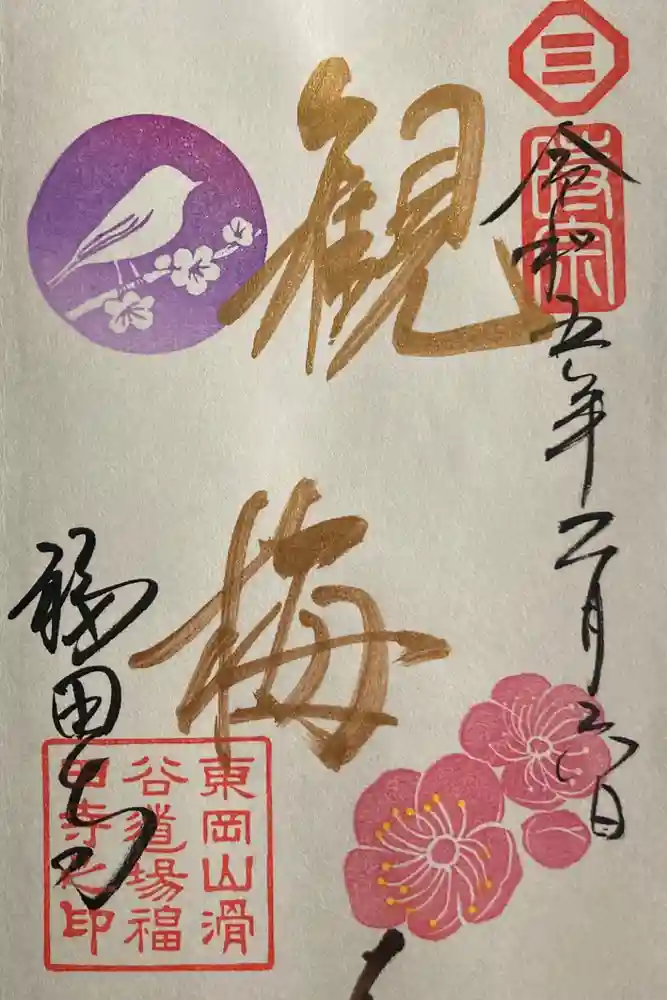 三
時宗
令和五年二月二六日
観梅
福田寺
東岡山滑
谷道場福
田寺之印